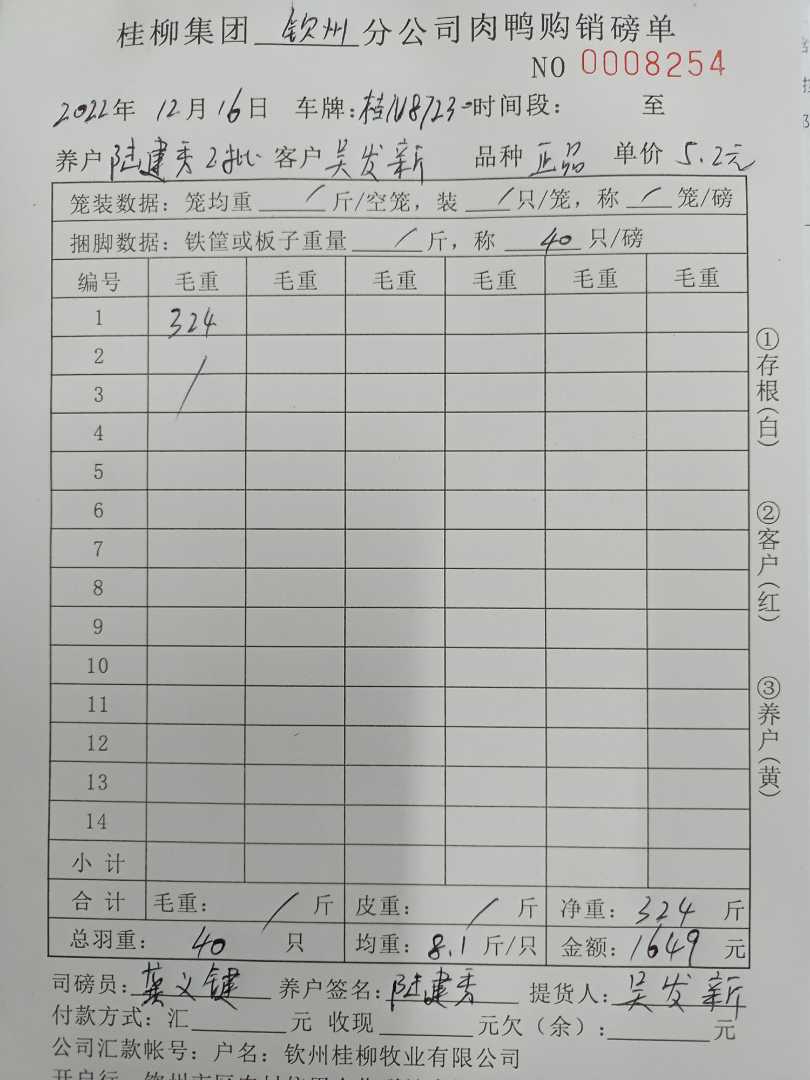 桂柳集团 钦州 分公司肉鸭购销磅单
NO 0008254
2022年 12月16日 车牌:桂N8723 时间段: 至
养户 陆建秀2批 客户 吴发新 品种 正品 单价 5.2元
笼装数据: 笼均重 / 斤/空笼, 装 / 只/笼, 称 / 笼/磅
捆脚数据: 铁筐或板子重量 / 斤, 称 40 只/磅
编号 毛重 毛重 毛重 毛重 毛重 毛重
1 324
2 /
3
4
5
6
7
8
9
10
11
12
13
14
小计
合计 毛重: / 斤 皮重: / 斤 净重: 324 斤
总羽重: 40 只 均重: 8.1 斤/只 金额: 1649 元
司磅员: 龚义键 养户签名: 陆建秀 提货人: 吴发新
付款方式: 汇 元 收现 元欠(余): 元
公司汇款帐号: 户名: 钦州桂柳牧业有限公司
①存根(白)
②客户(红)
③养户(黄)